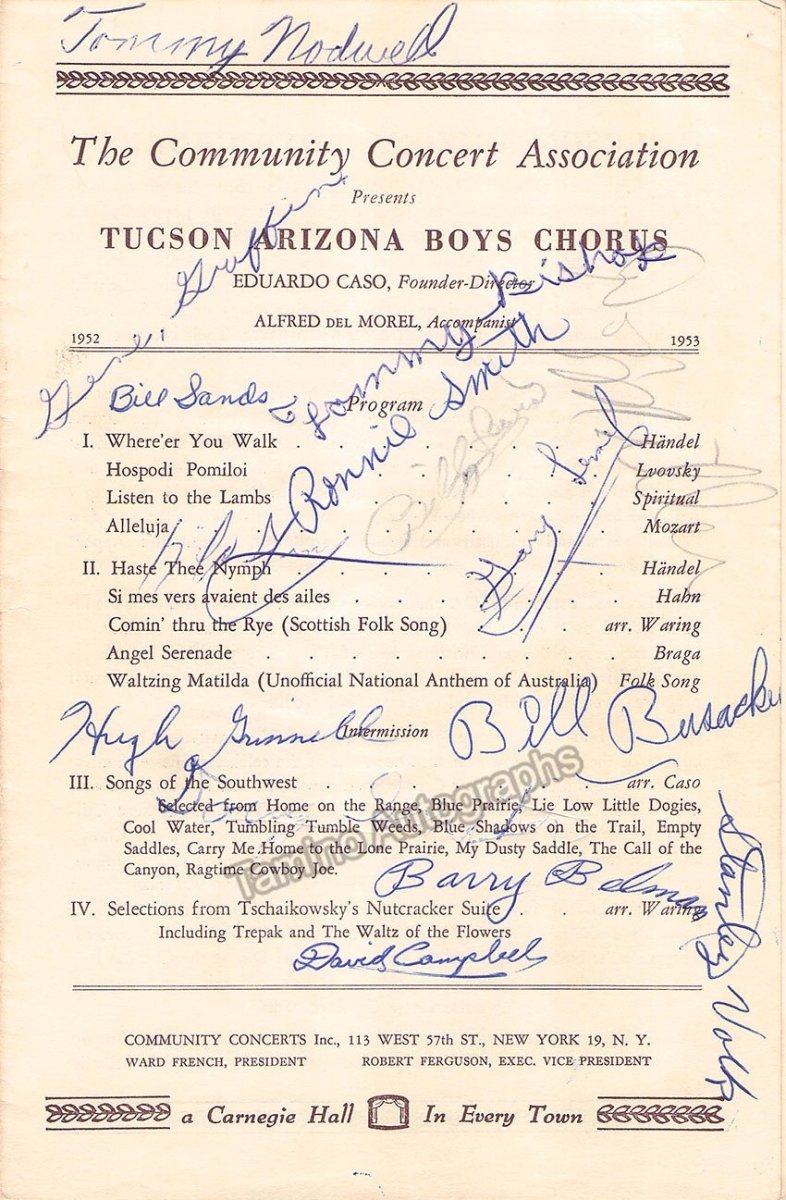 Tommy Nodwell
The Community Concert Association
Presents
TUCSON ARIZONA BOYS CHORUS
EDUARDO CASO, Founder-Director
ALFRED DEL MOREL, Accompanist
1952 1953
Gene Griffin
Tommy Bishop
Bill Sands
Program
Ronnie Smith
I. Where'er You Walk . . . . . . . . Händel
Hospodi Pomiloi . . . . . . . . Lvovsky
Listen to the Lambs . . . . . . . . Spiritual
Alleluja . . . . . . . . Mozart
Gary
II. Haste Thee Nymph . . . . . . . . Händel
Si mes vers avaient des ailes . . . . . . Hahn
Comin' thru the Rye (Scottish Folk Song) . . . arr. Waring
Angel Serenade . . . . . . . . Braga
Waltzing Matilda (Unofficial National Anthem of Australia) Folk Song
Hugh Grinnell
Intermission
Bill Busacker
III. Songs of the Southwest . . . . . . . arr. Caso
Selected from Home on the Range, Blue Prairie, Lie Low Little Dogies,
Cool Water, Tumbling Tumble Weeds, Blue Shadows on the Trail, Empty
Saddles, Carry Me Home to the Lone Prairie, My Dusty Saddle, The Call of the
Canyon, Ragtime Cowboy Joe.
Tamino Autographs
Barry Belman
IV. Selections from Tschaikowsky's Nutcracker Suite . . arr. Waring
Including Trepak and The Waltz of the Flowers
David Campbell
Stanley Volk
COMMUNITY CONCERTS Inc., 113 WEST 57th ST., NEW YORK 19, N. Y.
WARD FRENCH, PRESIDENT ROBERT FERGUSON, EXEC. VICE PRESIDENT
a Carnegie Hall In Every Town